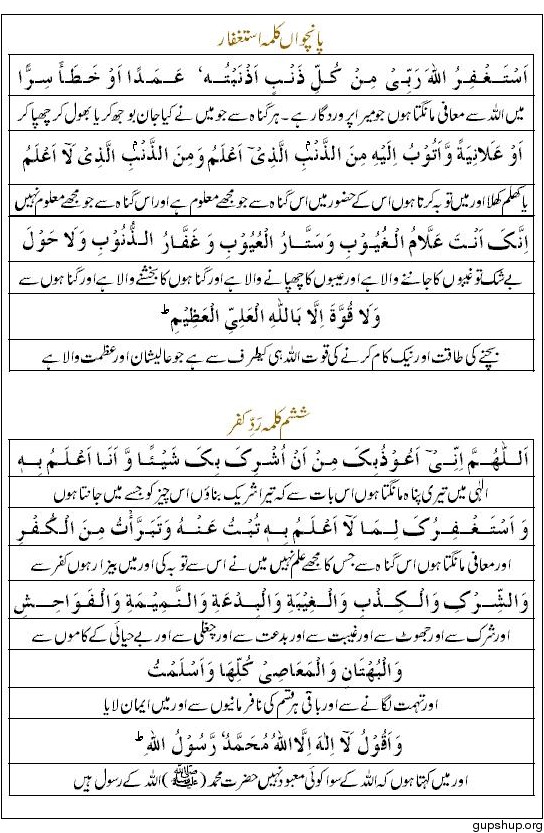 پانچواں کلمہ استغفار
اَسْتَغْفِرُ اللهَ رَبِّیْ مِنْ كُلِّ ذَنْۢبٍ اَذْنَبْتُهٗ عَمَدًا اَوْ خَطَأً سِرًّا
میں اللہ سے معافی مانگتا ہوں جو میرا پروردگار ہے۔ ہر گناہ سے جو میں نے کیا جان بوجھ کر یا بھول کر چھپا کر
اَوْ عَلَانِيَةً وَّاَتُوْبُ اِلَيْهِ مِنَ الذَّنْۢبِ الَّذِیْٓ اَعْلَمُ وَمِنَ الذَّنْۢبِ الَّذِیْ لَآ اَعْلَمُ
یا کھلم کھلا اور میں توبہ کرتا ہوں اس کے حضور میں اس گناہ سے جو مجھے معلوم ہے اور اس گناہ سے جو مجھے معلوم نہیں
اِنَّکَ اَنْتَ عَلَّامُ الْغُيُوْبِ وَسَتَّارُ الْعُيُوْبِ وَ غَفَّارُ الذُّنُوْبِ وَلَا حَوْلَ
بے شک تو غیبوں کا جاننے والا ہے اور عیبوں کا چھپانے والا ہے اور گناہوں کا بخشنے والا ہے اور گناہوں سے
وَلَا قُوَّةَ اِلَّا بِاللهِ الْعَلِیِّ الْعَظِيْمِ ؕ
بچنے کی طاقت اور نیک کام کرنے کی قوت اللہ ہی کیطرف سے ہے جو عالیشان اور عظمت والا ہے
ششم کلمہ ردِّ کفر
اَللّٰهُمَّ اِنِّیْٓ اَعُوْذُبِکَ مِنْ اَنْ اُشْرِکَ بِکَ شَيْئًا وَّ اَنَا اَعْلَمُ بِهٖ
الٰہی میں تیری پناہ مانگتا ہوں اس بات سے کہ تیرا شریک بناؤں اس چیز کو جسے میں جانتا ہوں
وَ اَسْتَغْفِرُکَ لِمَا لَآ اَعْلَمُ بِهٖ تُبْتُ عَنْهُ وَتَبَرَّأْتُ مِنَ الْكُفْرِ
اور معافی مانگتا ہوں اس گناہ سے جس کا مجھے علم نہیں میں نے اس سے توبہ کی اور میں بیزار ہوں کفر سے
وَالشِّرْكِ وَالْكِذْبِ وَالْغِيْبَةِ وَالْبِدْعَةِ وَالنَّمِيْمَةِ وَالْفَوَاحِشِ
اور شرک سے اور جھوٹ سے اور غیبت سے اور بدعت سے اور چغلی سے اور بے حیائی کے کاموں سے
وَالْبُهْتَانِ وَالْمَعَاصِیْ كُلِّهَا وَاَسْلَمْتُ
اور تہمت لگانے سے اور باقی ہر قسم کی نافرمانیوں سے اور میں ایمان لایا
وَاَقُوْلُ لَآ اِلٰهَ اِلَّا اللهُ مُحَمَّدٌ رَّسُوْلُ اللهِ ؕ
اور میں کہتا ہوں کہ اللہ کے سوا کوئی معبود نہیں حضرت محمد (ﷺ) اللہ کے رسول ہیں
gupshup.org